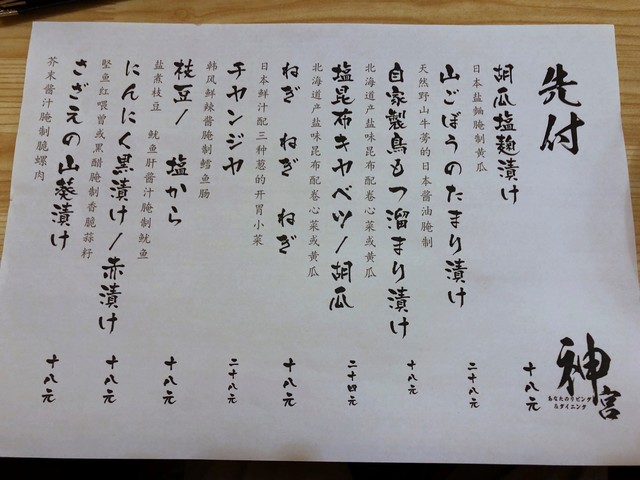 先付
胡瓜塩麹漬け
日本盐麯腌制黄瓜
十八元
山ごぼうのたまり漬け
天然野山牛蒡的日本酱油腌制
二十八元
自家製鳥もつ溜まり漬け
北海道产盐味昆布配卷心菜或黄瓜
十八元
塩昆布キャベツ/胡瓜
北海道产盐味昆布配卷心菜或黄瓜
二十四元
ねぎ ねぎ ねぎ
日本鲜汁配三种葱的开胃小菜
十八元
チャンジャ
韩风鲜辣酱腌制鳕鱼肠
二十八元
枝豆/ 塩から
盐煮枝豆 鱿鱼肝酱汁腌制鱿鱼
十八元
にんにく黒漬け/赤漬け
鲣鱼红喂曾或黒醋腌制香脆蒜籽
十八元
さざえの山葵漬け
芥末酱汁腌制脆螺肉
十八元
神宮
あなたのリビング
&ダイニング